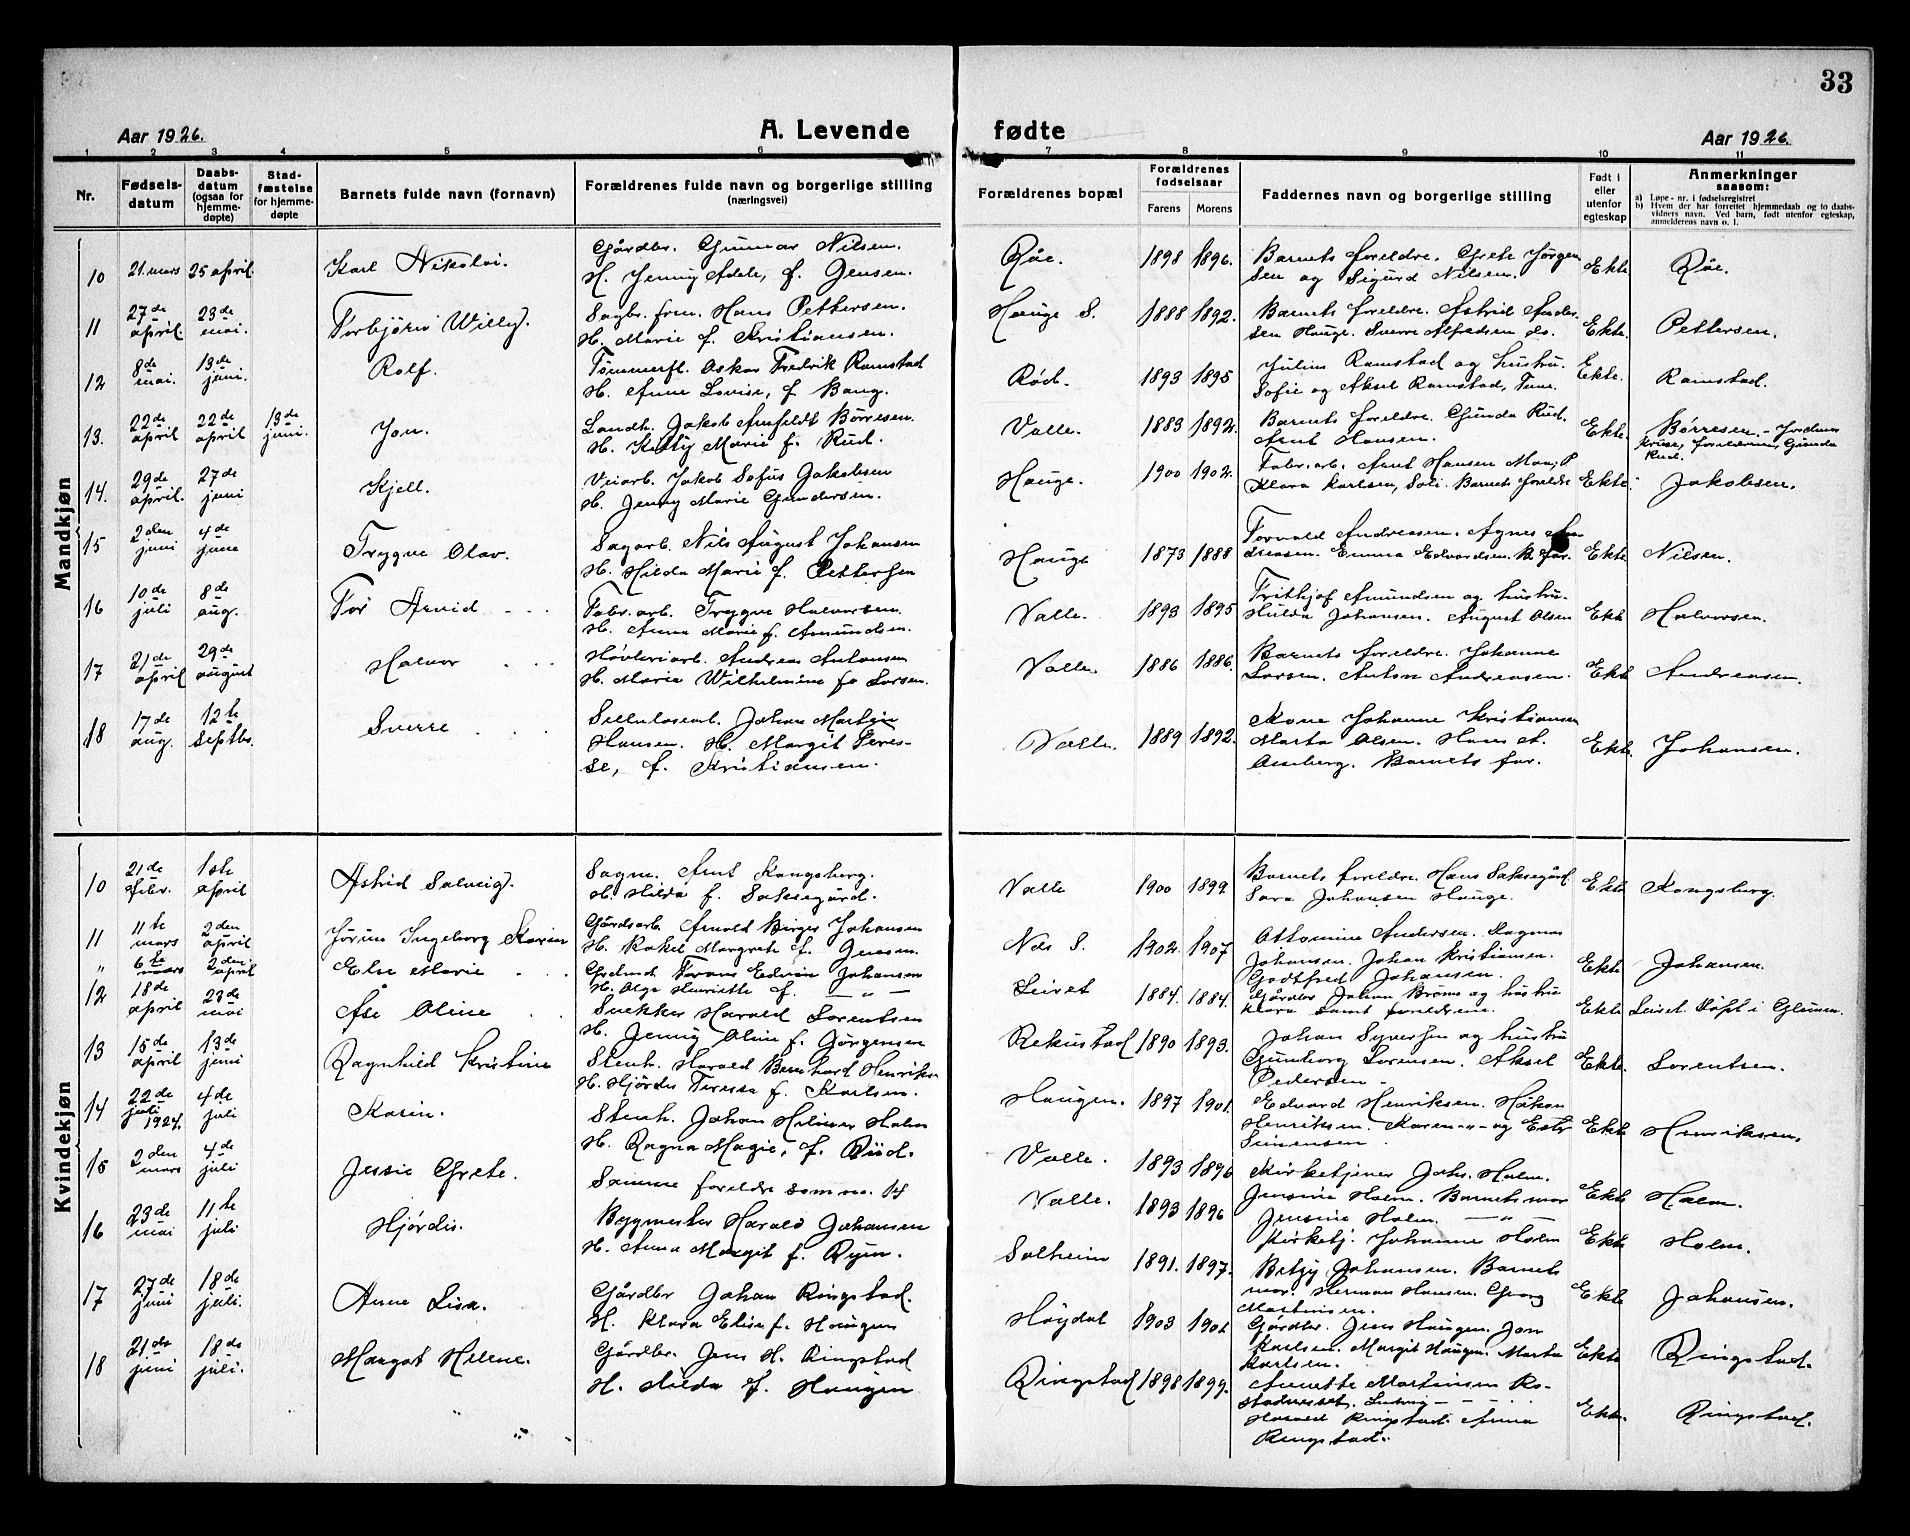 33
Aar 1926.
A. Levende fødte
Aar 1926.
1 2 3 4 5 6 7 8 9 10 11
Nr.
Fødsels-
datum
Daabs-
datum
(ogsaa for
hjemme-
døpte)
Stad-
fæstelse
for hjemme-
døpte
Barnets fulde navn (fornavn)
Forældrenes fulde navn og borgerlige stilling
(næringsvei)
Forældrenes bopæl
Forældrenes
fødselsaar
Farens Morens
Faddernes navn og borgerlige stilling
Født i
eller
utenfor
egteskap
Anmerkninger
saasom:
a) Løpe-nr. i fødselsregistret
b) Hvem der har forrettet hjemmedaab og to daabs-
vidners navn. Ved barn, født utenfor egteskap,
anmelderens navn o. l.
Mandkjøn
10 21. mars 25 april. Karl Nikolai.
Gårdbr. Gunnar Nilsen.
H. Jenny Adele, f. Jensen.
Röe. 1898 1896.
Barnets foreldre. Grete Jörgen
sen og Sigurd Nilsen.
Ekte Röe.
11 27de april. 23de mai. Torbjörn Willy.
Sagbr. form. Hans Pettersen.
H. Marie f. Kristiansen.
Hauge S. 1888 1892.
Barnets foreldre. Astrid Ander
sen Hauge. Sverre Alfredsen do.
Ekte. Pettersen.
12 8de mai. 13de juni. Rolf.
Tömmerfl. Oskar Fredrik Ramstad
H. Anne Lovise, f. Bang.
Röd. 1893 1895
Julius Ramstad og hustru
Sofie og Aksel Ramstad, Tune.
Ekte. Ramstad.
13. 22de april 22de april 13de juni. Jon.
Landh. Jakob Arnfeldt Börresen.
H. Kitty Marie f. Rud.
Valle. 1883 1892.
Barnets foreldre. Gunda Rud.
Arnt Hansen.
Ekte. Börresen. - Jordmor
Kruse, foreldrene, Gunda
Rud.
14. 29de april. 27de juni Kjell.
Veiarb. Jakob Sofus Jakobsen
H. Jenny Marie Gundersen.
Hauge. 1900 1902.
Fabr.arb. Arnt Hansen
Klara Karlsen, Soli. Barnets foreldre
Ekte. Jakobsen.
15 2den juni 4de june Trygve Olav.
Sagarb. Nils August Johansen
H. Hilda Marie f. Pettersen
Hauge 1873 1888
Torvald Andreasen. Agnes An
dreasen. Emma Edvardsen. B. far.
Ekte Nilsen.
16 10de juli 8de aug. Tor Arvid
Fabr.arb. Trygve Halvorsen.
H. Anna Marie f. Amundsen.
Valle. 1893 1895
Frithjof Amundsen og hustru.
Hulda Johansen. August Olsen
Ekte Halvorsen.
17 21de april 29de august Halvor
Hövleriarb. Andreas Antonsen
H. Marie Wilhelmine fo Larsen.
Valle. 1886 1886.
Barnets foreldre. Johanne
Larsen. Anton Andreasen.
Ekte Andreasen.
18 17de aug. 12te septbr. Sverre
Sellulosearb. Johan Martin
Hansen. H. Margit Teres-
se, f. Kristiansen.
Valle. 1889 1892.
Kone Johanne Kristiansen
Marta Olsen. Hans A.
Amberg. Barnets far.
Ekte. Johansen.
Kvindekjøn
10 21de febr. 1ste april Astrid Solveig.
Sagm. Arnt Kongsberg.
H. Hilda f. Saksegård.
Valle 1900 1899
Barnets foreldre. Hans Saksegård
Sara Johansen Hauge.
Ekte Kongsberg.
11 11te mars 2den april Jörun Ingeborg Karin
Gårdsarb. Arnold Birger Johansen
H. Rakel Margrete f. Jensen.
Nds S. 1902. 1907
Ottomine Andersen. Dagmar
Johansen. Johan Kristiansen.
Godtfred Johansen.
Ekte Johansen.
" 6te mars 2den april Else Marie
Frans Edvin Johansen
H. Olga Henriette f. — " —
Leiret 1884. 1884.
Gårdbr Johan Bröms og hustru
Klara samt foreldrene.
Ekte Leiret. Döpt i Glemm.
12 18de april 23de mai Åse Oline
Snekker Harald Lorentsen
H. Jenny Oline f. Jörgensen
Rekustad 1890 1893.
Johan Syversen og hustru
Gunborg Lorensen. Aksel
Pedersen -
Ekte. Lorentsen.
13 15de april 13de juni Ragnhild Kristine
Stenh. Harald Bernhard Henriks-
H. Hjördis Teresse f. Karlsen.
Haugen. 1897 1901.
Edvard Henriksen. Håkon
Henriksen. Karen -"- og Ester
Simensen.
Ekte Henriksen.
14 22de juli 1924. 4de juli Karin.
Stenh. Johan Hilmer Holm
H. Ragna Magie, f. Rüd.
Valle. 1893 1896
Kirketjener Johs. Holm.
Jensine Holm. Barnets mor
Ekte Holm.
15 2den mars 4de juli Jessie Grete.
Samme foreldre som no. 14
Valle. 1893 1896
Jensine Holm. — " —
Kirketj. Johanne Holm
Ekte Holm.
16 23de mai 11te juli Hjördis.
Bygmester Harald Johansen
H. Anna Margit f. Ryen.
Solheim 1891. 1897.
Betzy Johansen. Barnets
mor. Herman Hansen. Georg
Martinsen.
Ekte Johansen.
17 27de juni 18de juli. Anne Lisa.
Gårdbr Johan Ringstad.
H. Klara Elise f. Haugen
Höydal 1903 1901
Gårdbr. Jens Haugen. Jon
Karlsen. Margit Haugen. Marta
Karlsen.
Ekte Ringstad.
18 21de juni 18de juli. Margot Helene.
Gårdbr. Jens H. Ringstad
H. Hilda f. Haugen
Ringstad 1898 1899.
Annette Martinsen Ro-
stadnesset. Ludvig — - - - .
Harald Ringstad. Anna
Ringstad.
Ekte. Ringstad.